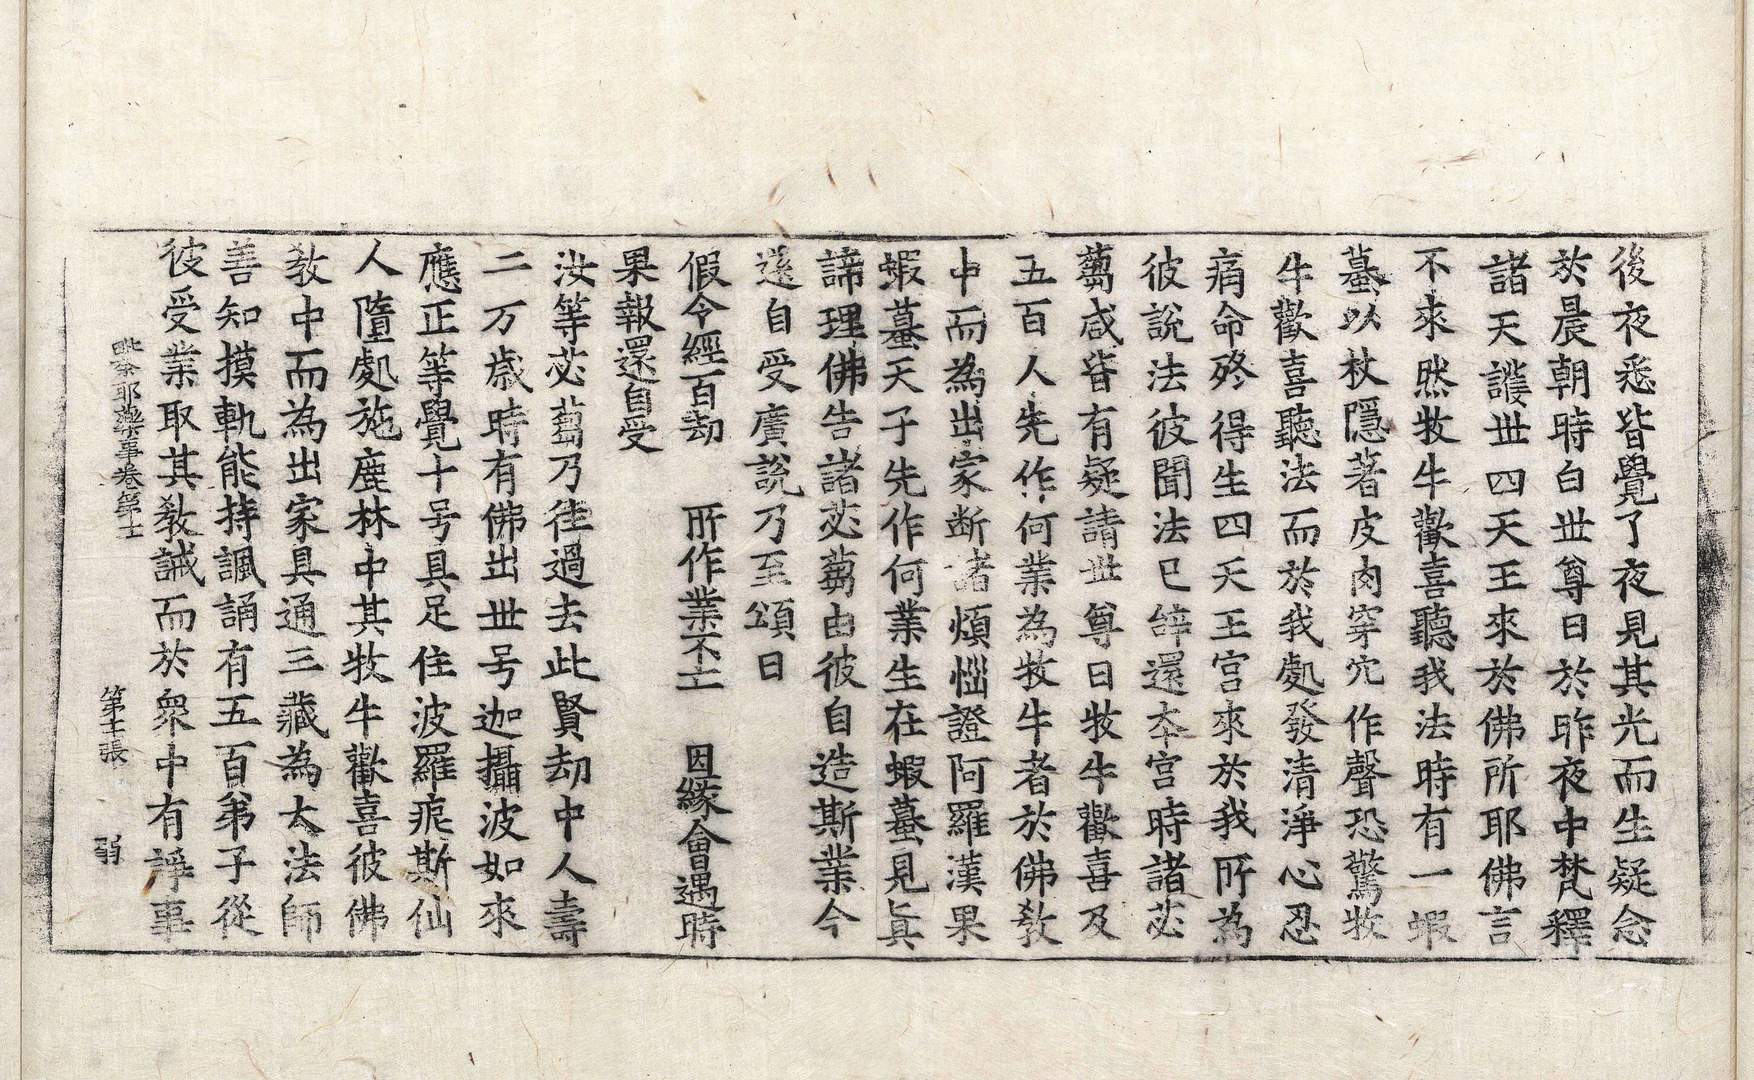 後夜悉皆覺了夜見其光而生疑念
於晨朝時白世尊曰於昨夜中梵釋
諸天護世四天王來於佛所耶佛言
不來然牧牛歡喜聽我法時有一蝦
蟇以杖隱著皮肉穿穴作聲恐驚牧
牛歡喜聽法而於我處發清淨心忍
痛命終得生四天王宮來於我所為
彼說法彼聞法已辝還本宮時諸苾
蒭咸皆有疑請世尊曰牧牛歡喜及
五百人先作何業為牧牛者於佛教
中而為出家断諸煩惱證阿羅漢果
蝦蟇天子先作何業生在蝦蟇見真
諦理佛告諸苾蒭由彼自造斯業今
遂自受廣說乃至頌曰
假令經百劫　所作業不亡　因緣會遇時
果報還自受
汝等苾蒭乃往過去此賢劫中人壽
二万歲時有佛出世号迦攝波如來
應正等覺十号具足住波羅痆斯仙
人墮處施鹿林中其牧牛歡喜彼佛
教中而為出家具通三藏為大法師
善知摸軌能持諷誦有五百弟子從
彼受業取其教誡而於衆中有諍事
毗奈耶藥事卷第十一　第十二張　弱